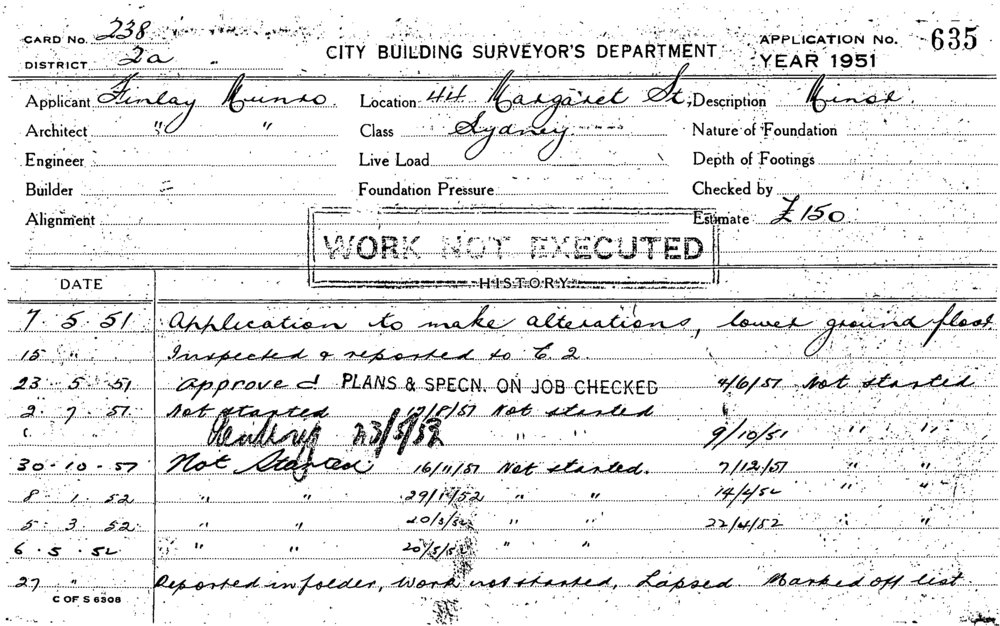 CARD No. 238
DISTRICT 2a
CITY BUILDING SURVEYOR'S DEPARTMENT
APPLICATION No. 635
YEAR 1951
Applicant Finlay Munro Location 44 Margaret St, Description Minor.
Architect " " Class Sydney Nature of Foundation
Engineer Live Load Depth of Footings
Builder Foundation Pressure Checked by
Alignment Estimate £150
WORK NOT EXECUTED
DATE HISTORY
7. 5. 51 Application to make alterations, lower ground floor.
15 " Inspected & reported to E.2.
23. 5. 51 Approved PLANS & SPECN. ON JOB CHECKED 4/6/51 Not started
2. 7. 51 Not started /8/51 Not started
23/5/52 " " 9/10/51 " "
30-10-51 Not Started 16/11/51 Not started. 7/12/51 " "
8. 1. 52 " " 29/1/52 " " 14/4/52 " "
5. 3. 52 " " 20/3/52 " " 22/4/52 " "
6. 5. 52 " " 20/5/52 " "
27 " Reported in folder, work not started, Lapsed Marked off list
C OF S 6308